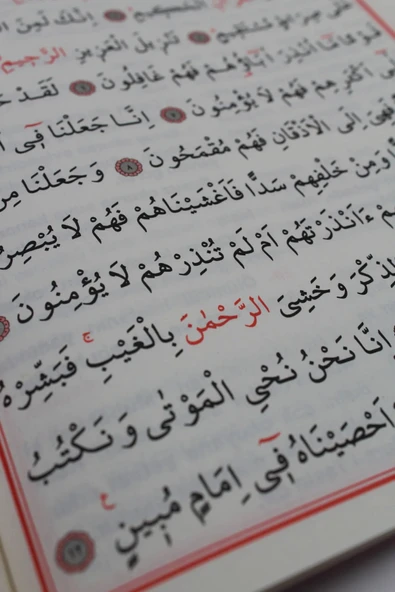 الْحَكِيمِ ۙ اِنَّكَ لَمِنَ
عَلٰى صِرَاطٍ مُسْتَقِيمٍ ۜ تَنْزِيلَ الْعَزِيزِ الرَّحِيمِ
قَوْمًا مَٓا اُنْذِرَ اٰبَٓاؤُ۬هُمْ فَهُمْ غَافِلُونَ ﴿٦﴾ لَقَدْ
عَلٰٓى اَكْثَرِهِمْ فَهُمْ لَا يُؤْمِنُونَ ﴿٧﴾ اِنَّا جَعَلْنَا فِٓى
فَهِىَ اِلَى الْاَذْقَانِ فَهُمْ مُقْمَحُونَ ﴿٨﴾ وَجَعَلْنَا مِنْ
وَمِنْ خَلْفِهِمْ سَدًّا فَاَغْشَيْنَاهُمْ فَهُمْ لَا يُبْصِرُ
ءَاَنْذَرْتَهُمْ اَمْ لَمْ تُنْذِرْهُمْ لَا يُؤْمِنُونَ
الذِّكْرَ وَخَشِىَ الرَّحْمٰنَ بِالْغَيْبِ ۚ فَبَشِّرْهُ
اِنَّا نَحْنُ نُحْيِ الْمَوْتٰى وَنَكْتُبُ
اَحْصَيْنَاهُ فِٓى اِمَامٍ مُبِينٍ ﴿١٢﴾